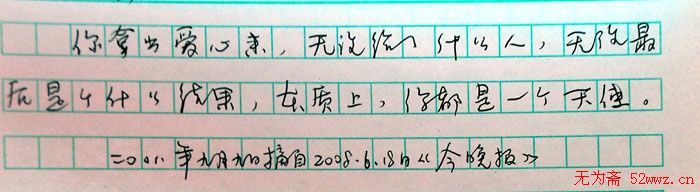 你拿出爱心来，无论给了什么人，无论最
后是个什么结果，本质上，你都是一个天使。
二〇〇八年九月九日摘自2008.6.18日《今晚报》
无为斋 52wwz.cn